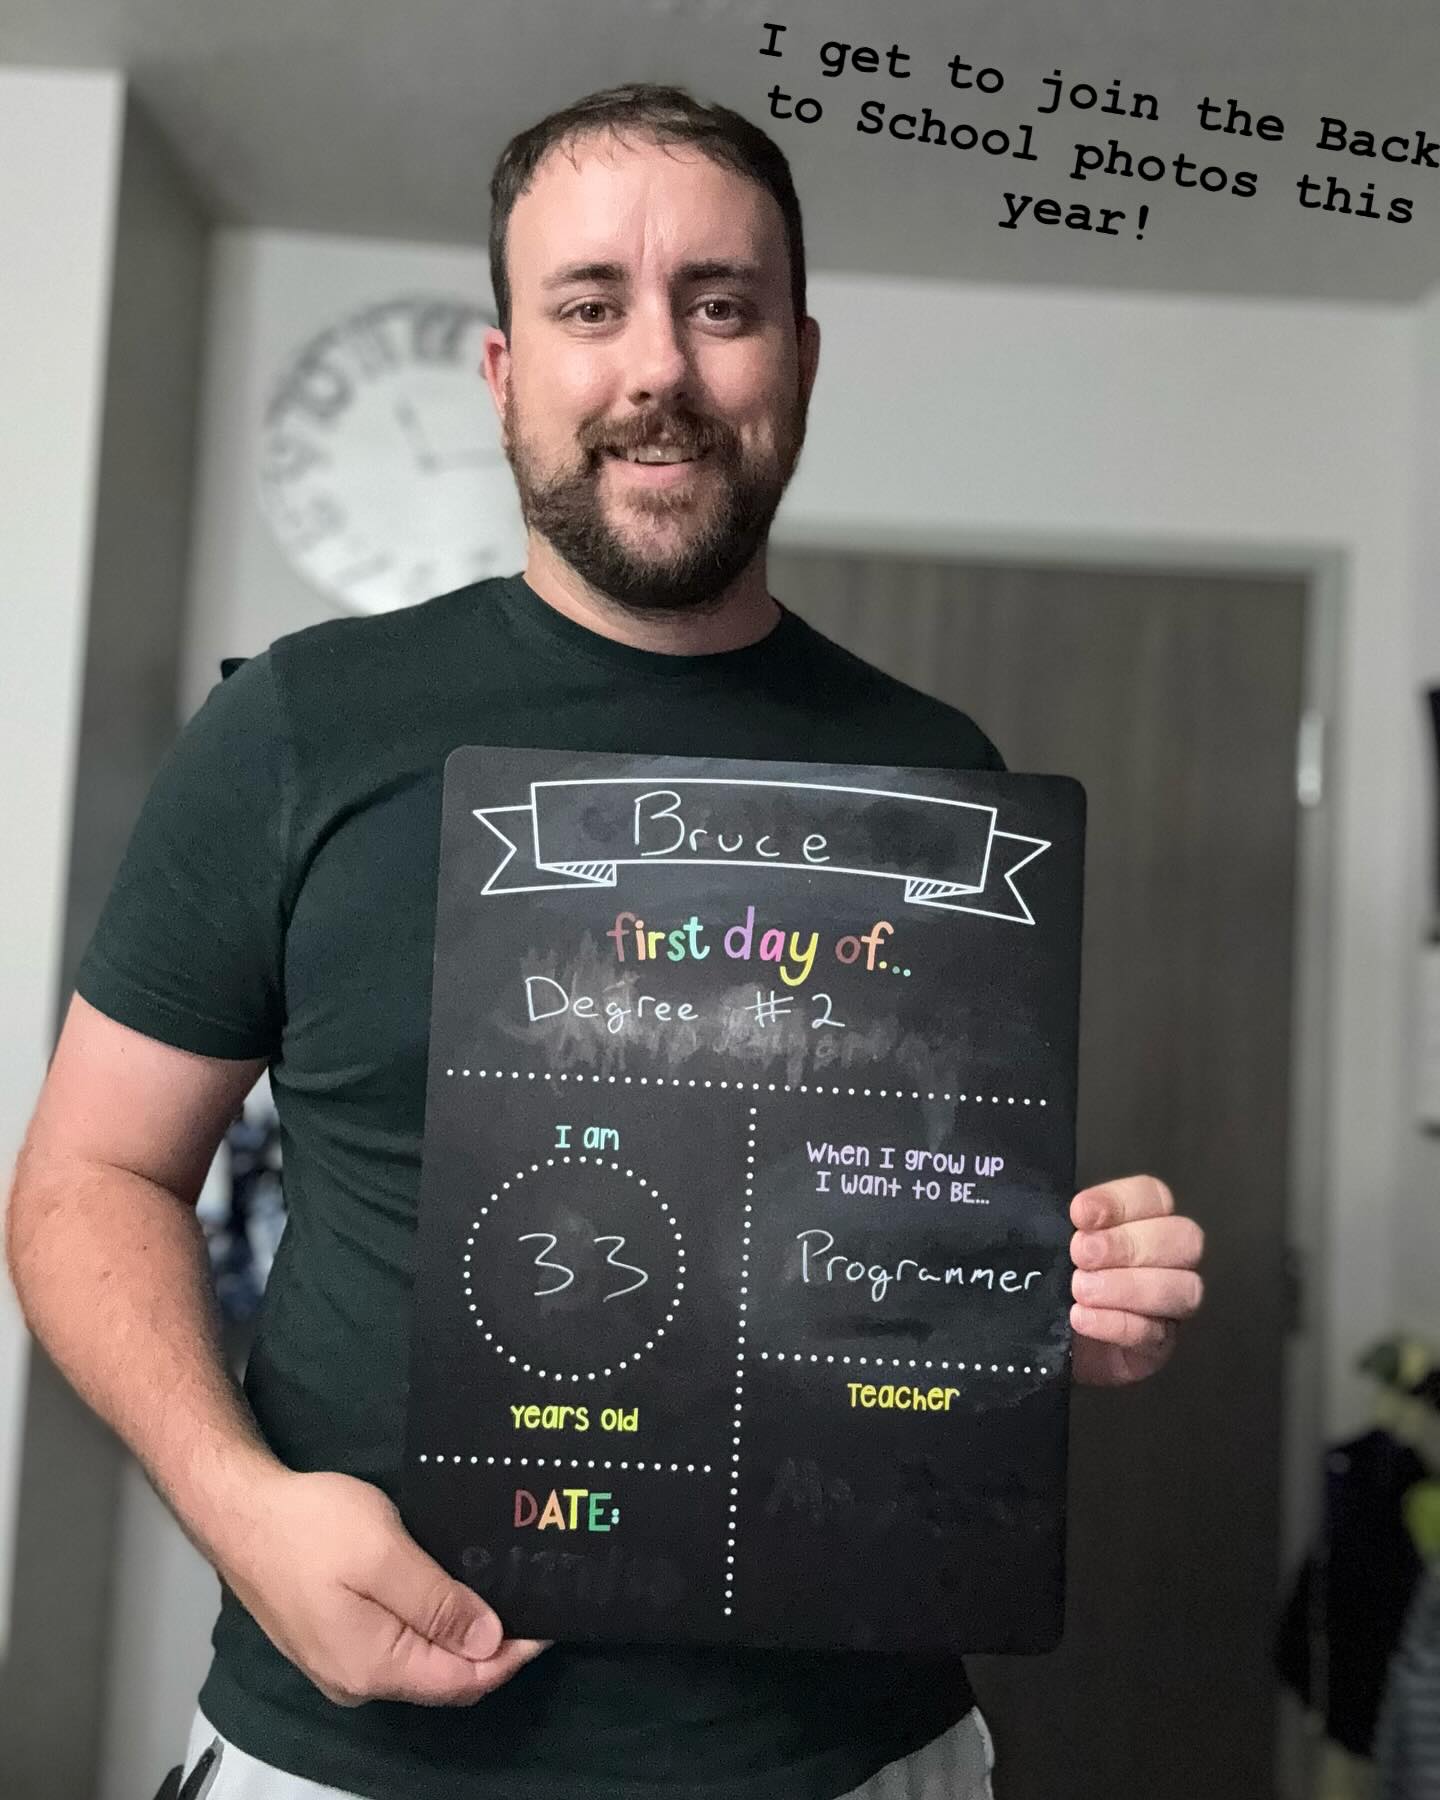 I get to join the Back
to School photos this
year!
Bruce
first day of...
Degree #2
I am
33
years old
When I grow up
I want to BE...
Programmer
Teacher
DATE: